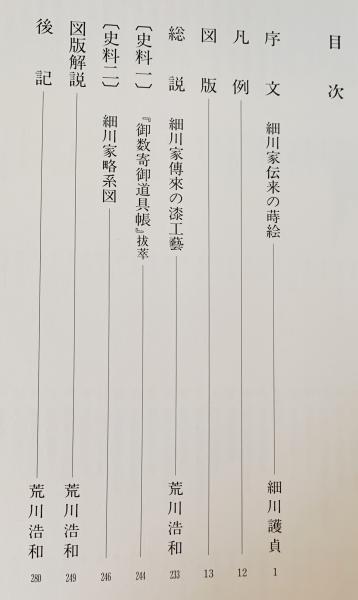 目次
序文 細川家伝来の蒔絵 細川護貞 1
凡例 12
図版 13
総説 細川家傳來の漆工藝 荒川浩和 233
〔史料一〕 『御数寄御道具帳』抜萃 244
〔史料二〕 細川家略系図 246
図版解説 荒川浩和 249
後記 荒川浩和 280